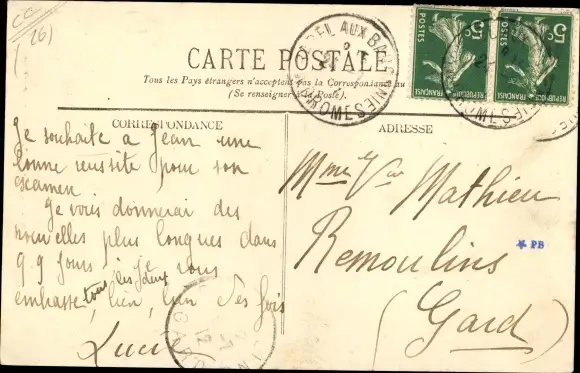 CARTE POSTALE
Tous les Pays étrangers n'acceptent pas la Correspondance au
(Se renseigner à la Poste).
CORRESPONDANCE
Je souhaite à Jean une
bonne réussite pour son
examen
Je vous donnerai des
nouvelles plus longues dans
q.q jours je vous
embrasse tous les deux, bien, bien des fois
ADRESSE
Mme Vve Mathieu
Remoulins
(Gard)
POSTES
5c
REPUBLIQUE FRANÇAISE
POSTES
5c
REPUBLIQUE FRANÇAISE
AUX BARONNIES
DROME
PB